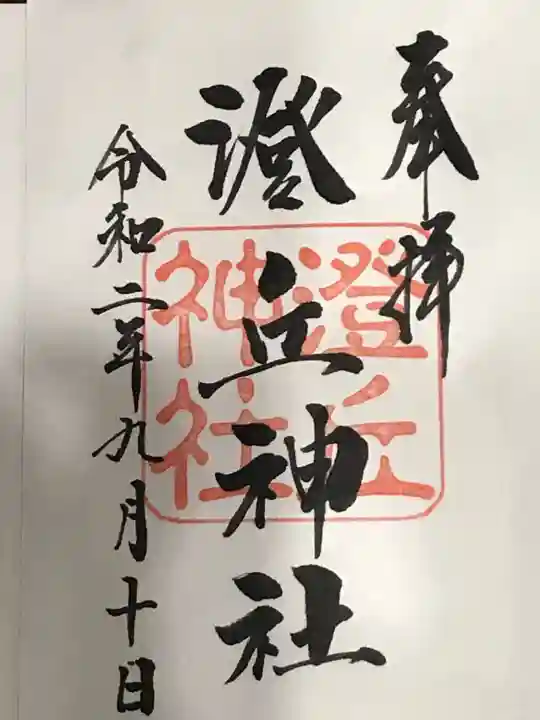 奉拝
澄丘神社
澄丘
神社
令和二年九月十日